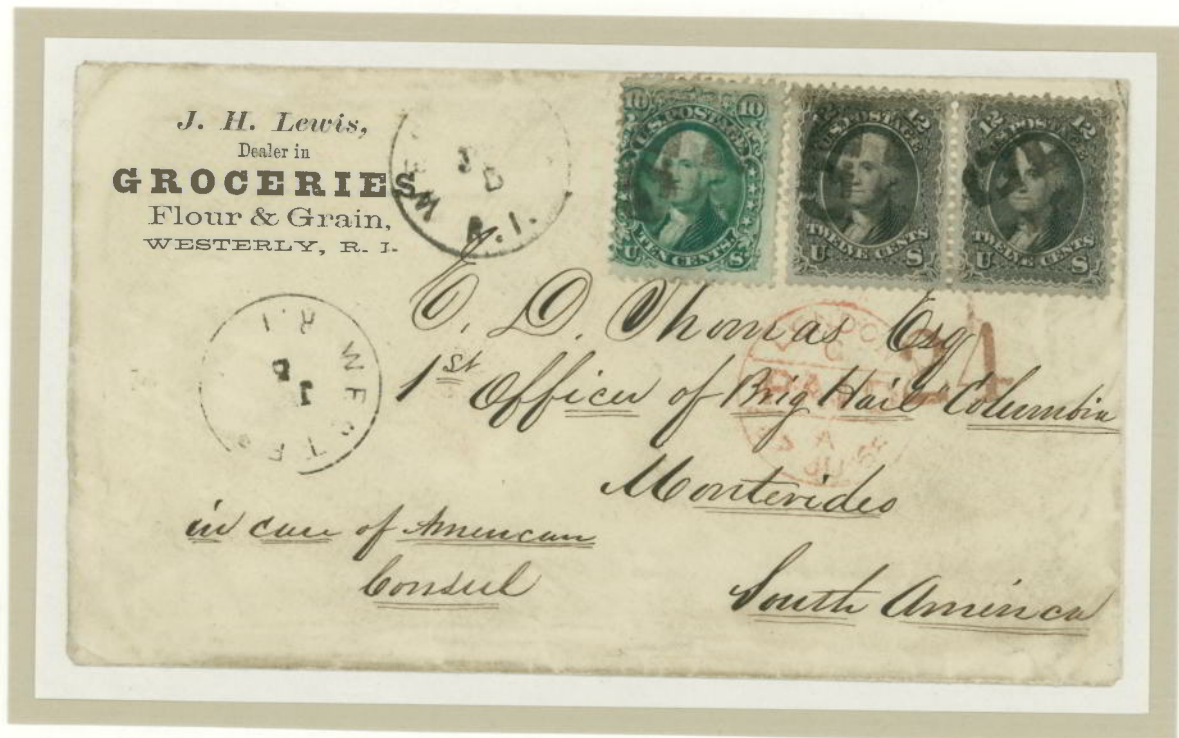 J. H. Lewis,
Dealer in
GROCERIES
Flour & Grain,
WESTERLY, R. I.
R.I.
10 10
U.S. POSTAGE
TEN CENTS
U S
12
U.S. POSTAGE
TWELVE CENTS
U S
12 12
U.S. POSTAGE
TWELVE CENTS
U S
LONDON
PAID
24
R.I.
D. Thomas Esq
1st Officer of Brig Hail Columbia
Montevideo
in care of American
Consul
South America